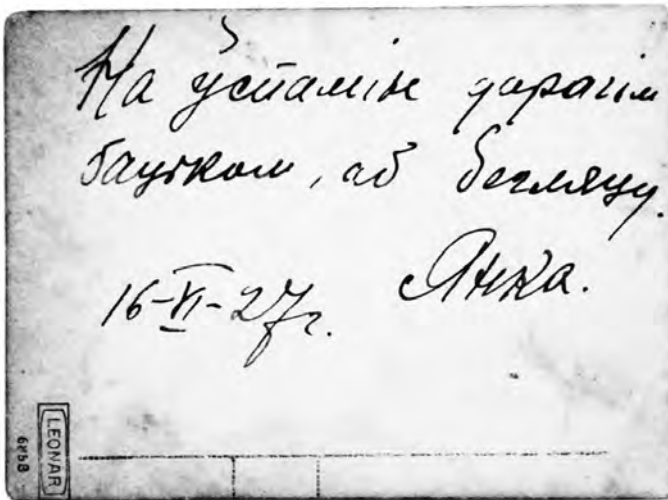 На ўспамін дарагім
бацьком, аб бегляцу.
Янка.
16-VI-27г.
LEONAR
6258